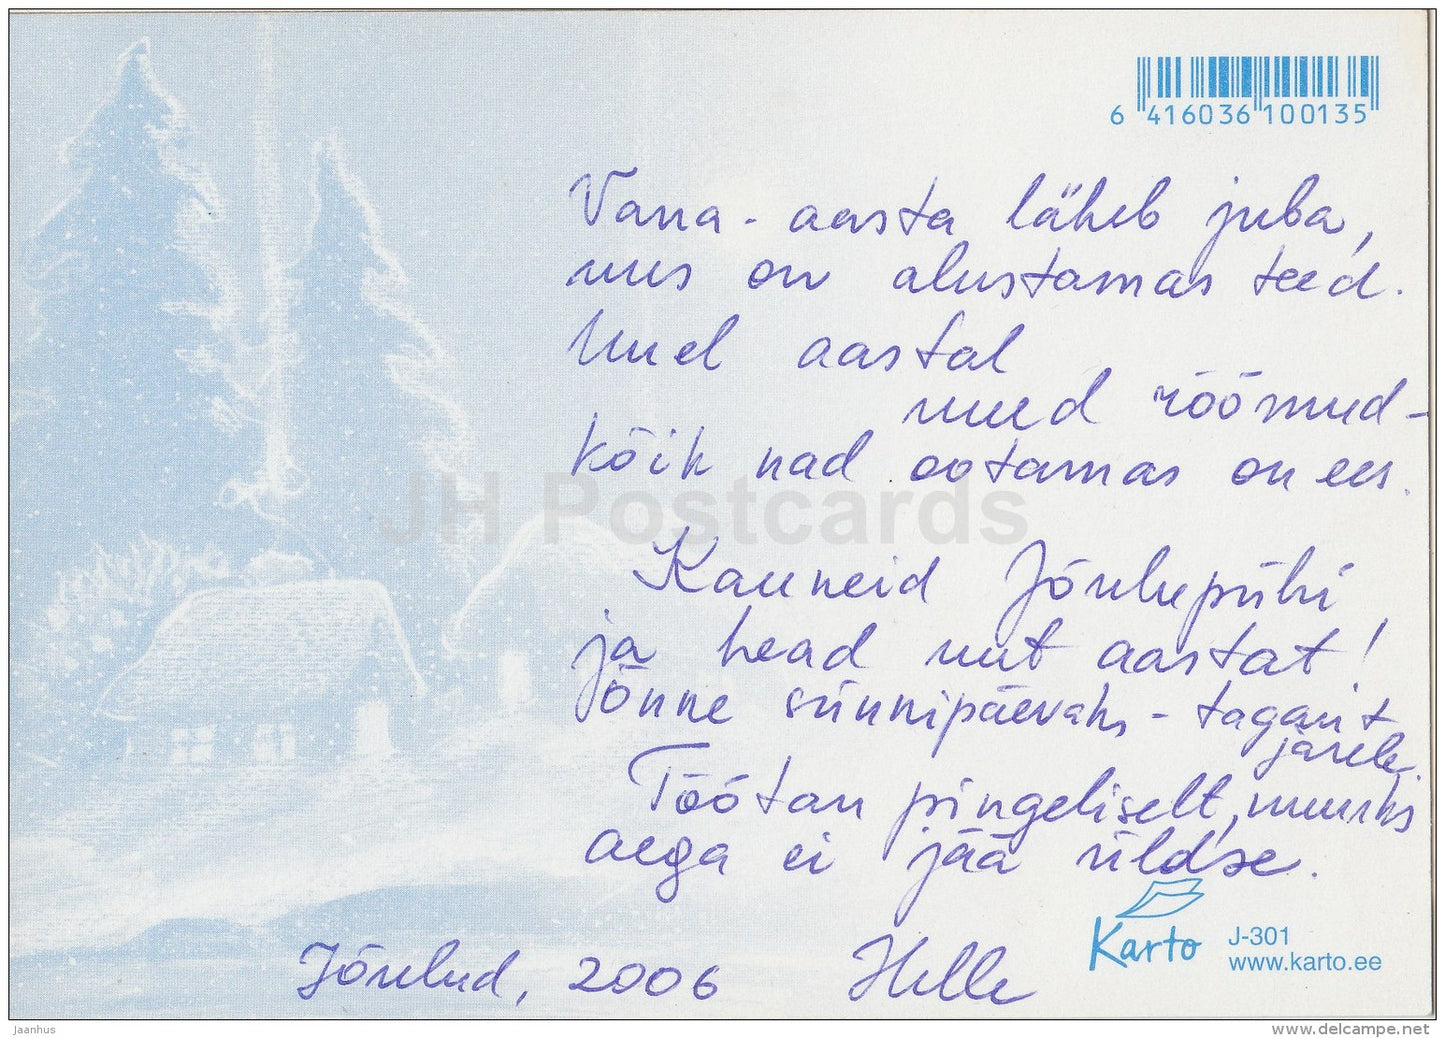 6 416036 100135
Vana-aasta läheb juba,
uus on alustamas teed.
Uuel aastal
uued rõõmud-
kõik nad ootamas on ees.
Kauneid Jõulupühi
ja head uut aastat!
Õnne sünnipäevaks - tagant
järele.
Töötan pingeliselt, muuks
aega ei jää üldse.
Jõulud, 2006 Helle
Karto J-301
www.karto.ee
JH Postcards
jaanhus
www.delcampe.net